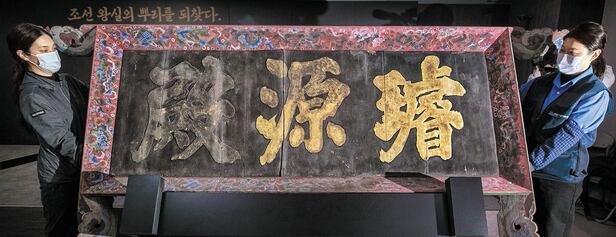 조선 왕실의 뿌리를 되찾다.
殿源璿